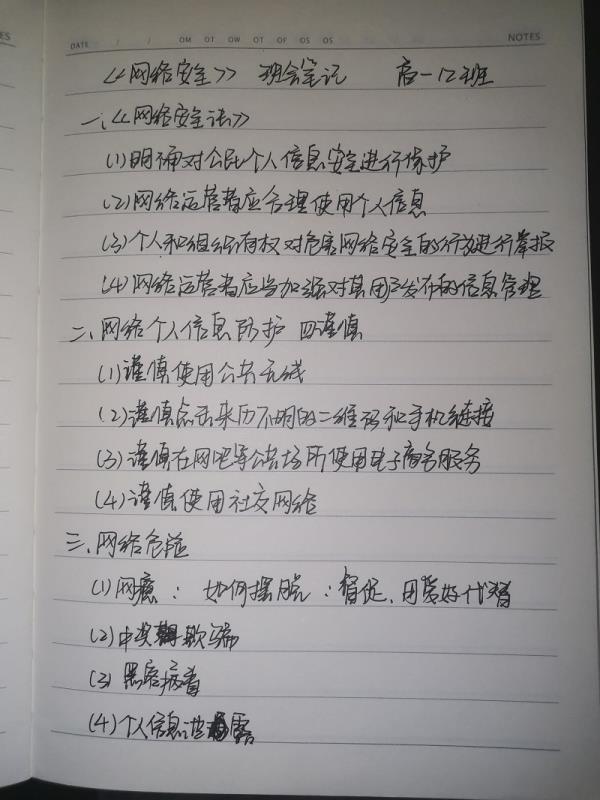 DATE / / OM OT OW OT OF OS OS NOTES
《网络安全》 班会笔记 高一12班
一、《网络安全法》
(1)明确对公民个人信息安全进行保护
(2)网络运营者应合理使用个人信息
(3)个人和组织有权对危害网络安全的行为进行举报
(4)网络运营者应当加强对其用户发布的信息管理
二、网络个人信息防护 四谨慎
(1)谨慎使用公共无线
(2)谨慎点击来历不明的二维码和手机链接
(3)谨慎在网吧等公共场所使用电子商务服务
(4)谨慎使用社交网络
三、网络危险
(1)网瘾：如何摆脱：督促、用爱好代替
(2)中奖欺骗
(3)黑客病毒
(4)个人信息泄露